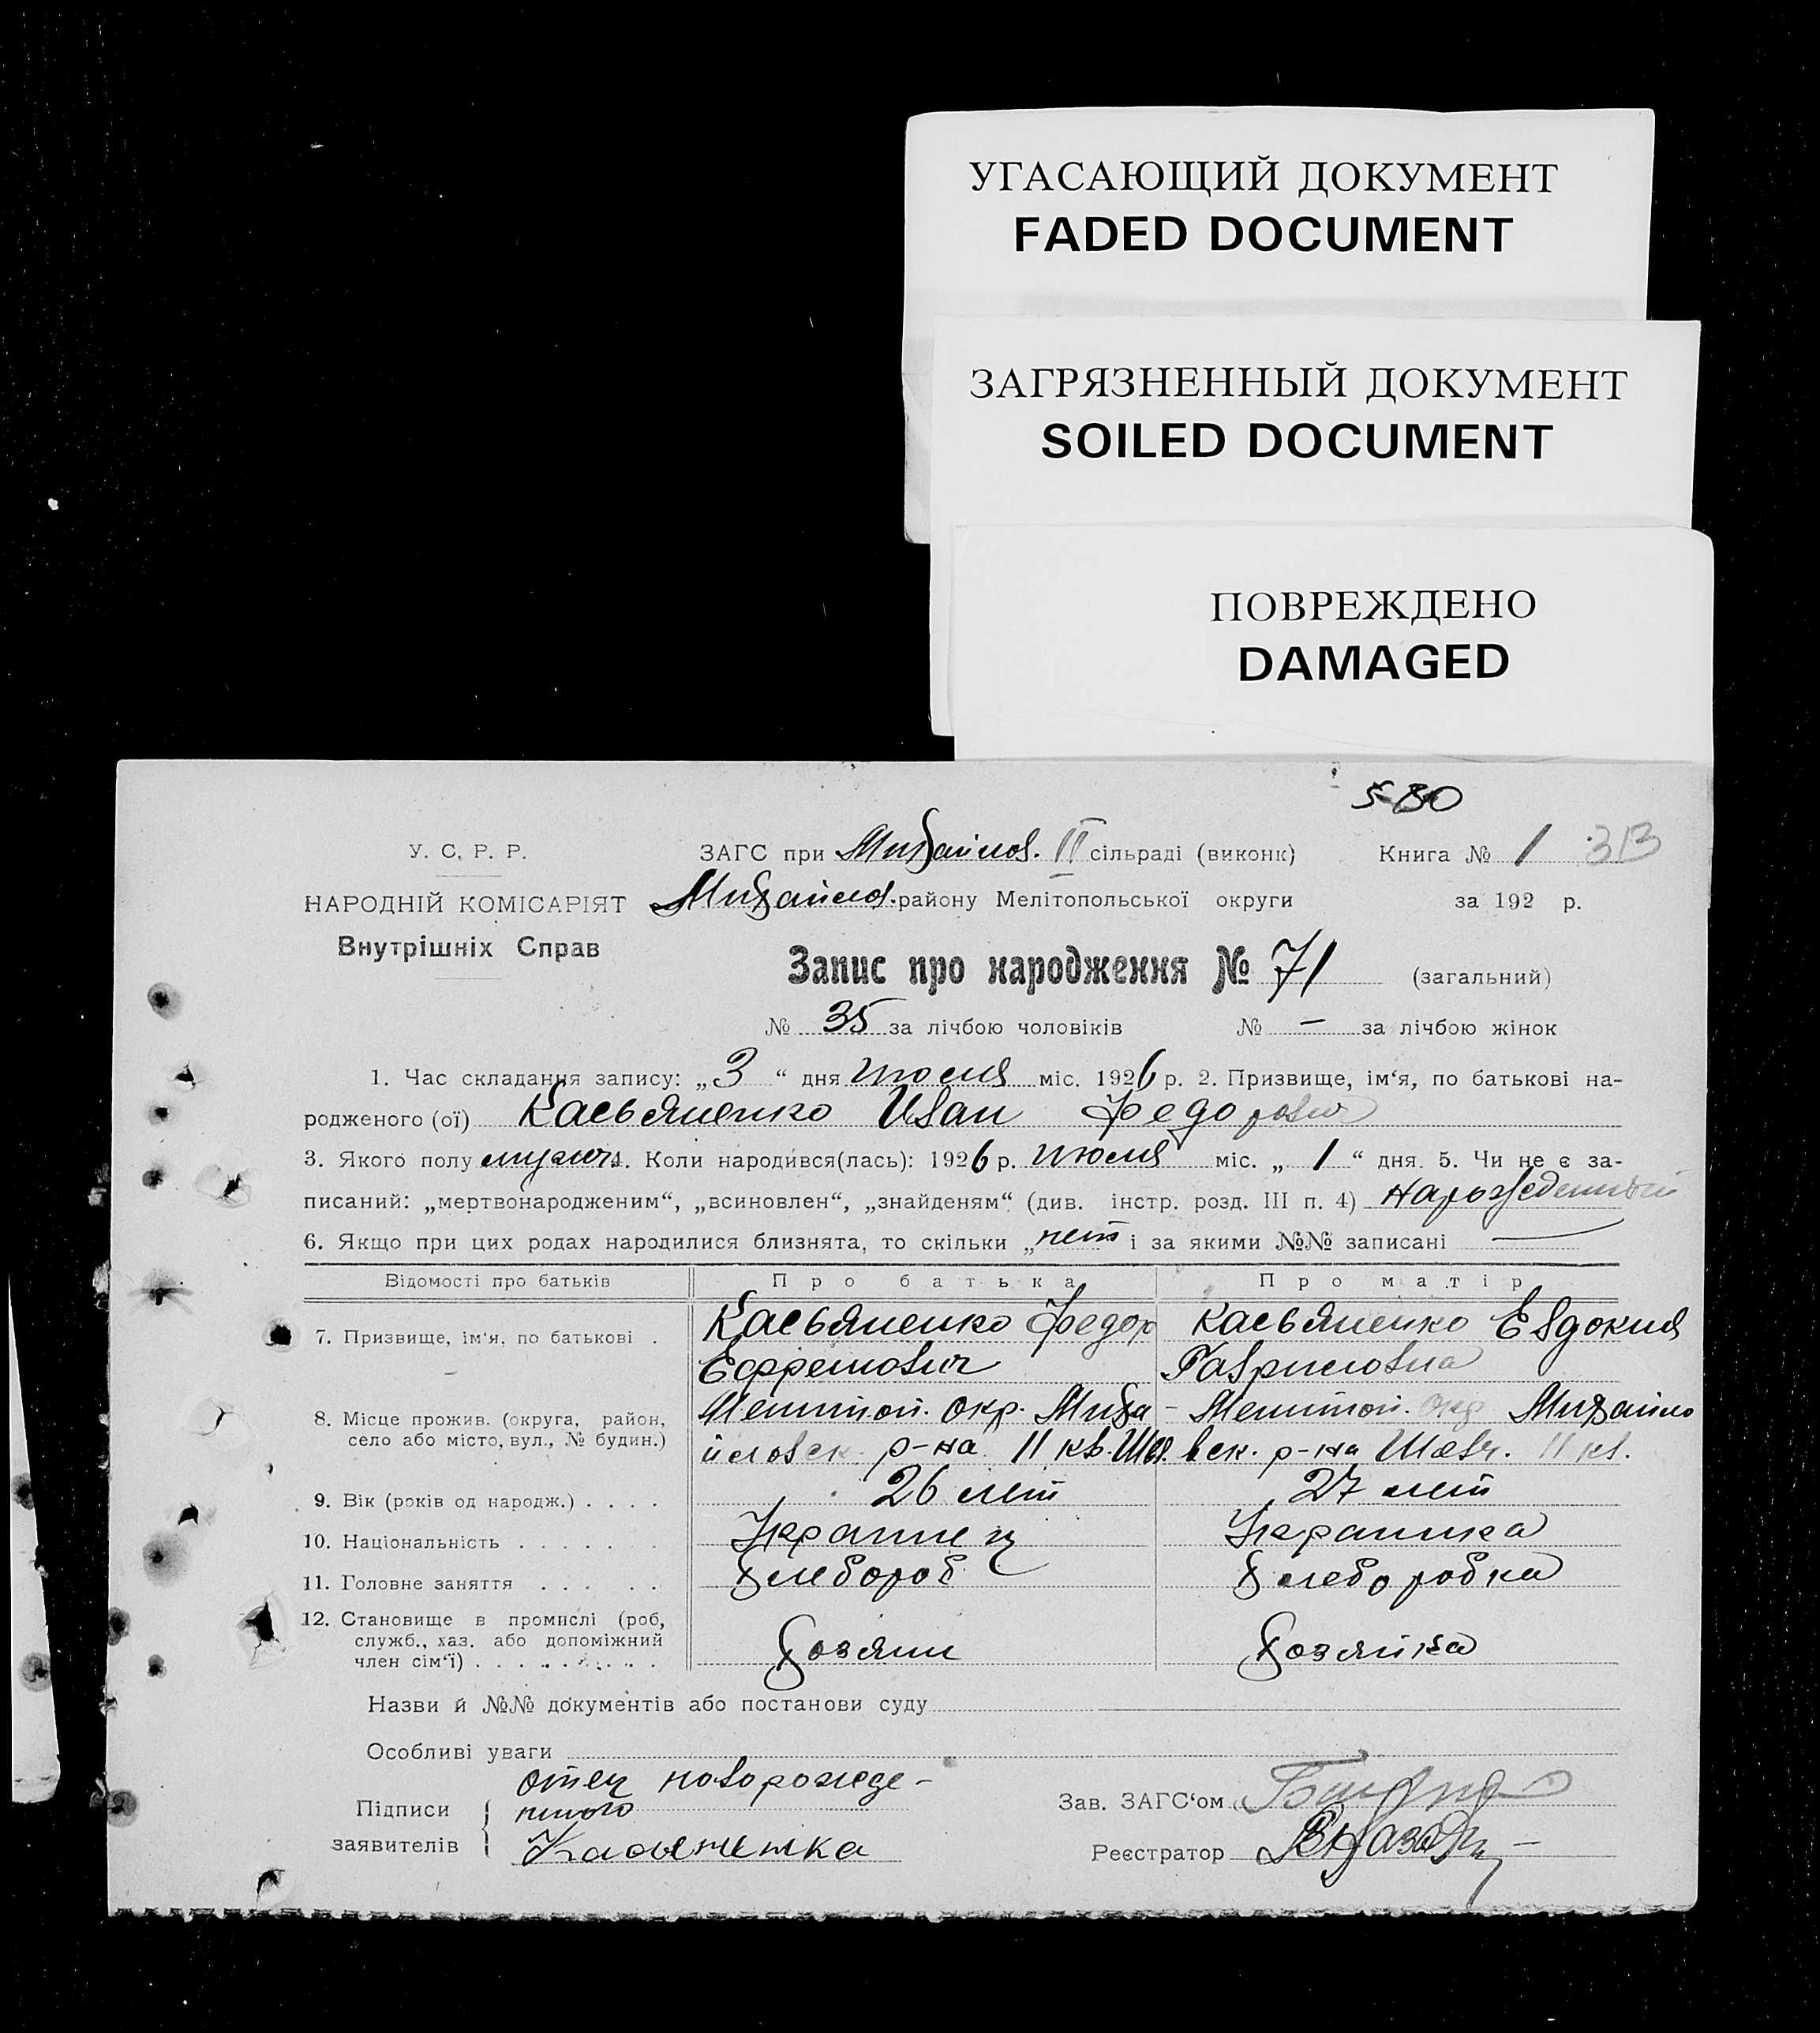 УГАСАЮЩИЙ ДОКУМЕНТ
FADED DOCUMENT
ЗАГРЯЗНЕННЫЙ ДОКУМЕНТ
SOILED DOCUMENT
ПОВРЕЖДЕНО
DAMAGED
580
У. С. Р. Р.
ЗАГС при Михайлов. II сільраді (виконк)
Книга № 1 313
НАРОДНІЙ КОМІСАРІЯТ
Михайлов. району Мелітопольської округи
за 192 р.
Внутрішніх Справ
Запис про народження № 71 (загальний)
№ 35 за лічбою чоловіків № — за лічбою жінок
1. Час складання запису: „3“ дня июля міс. 1926 р. 2. Призвище, ім‘я, по батькові на-
родженого (ої) Касьяненко Иван Федорович
3. Якого полу мужч. 4. Коли народився(лась): 1926 р. июля міс. „1“ дня. 5. Чи не є за-
писаний: „мертвонародженим“, „всиновлен“, „знайденям“ (див. інстр. розд. III п. 4) нарожденный
6. Якщо при цих родах народилися близнята, то скільки „нет і за якими №№ записані —
Відомості про батьків Про батька Про матір
7. Призвище, ім‘я, по батькові . Касьяненко Федор Касьяненко Евдокия
Ефремович Гавриловна
8. Місце прожив. (округа, район, Мелитоп. окр. Миха- Мелитоп. окр Михайло
село або місто, вул., № будин.) йловск. р-на 11 кв. Шев. вск. р-на Шевч. 11 кв.
9. Вік (років од народж.) . . . . 26 лет 27 лет
10. Національність . . . . . . Украинец Украинка
11. Головне заняття . . . . . Хлебороб Хлеборобка
12. Становище в промислі (роб,
служб., хаз. або допоміжний Хозяин Хозяйка
член сім‘ї) . . . . . . . . . .
Назви й №№ документів або постанови суду
Особливі уваги
отец новорожде-
Підписи нного
Зав. ЗАГС‘ом
заявителів Касьяненка
Реєстратор